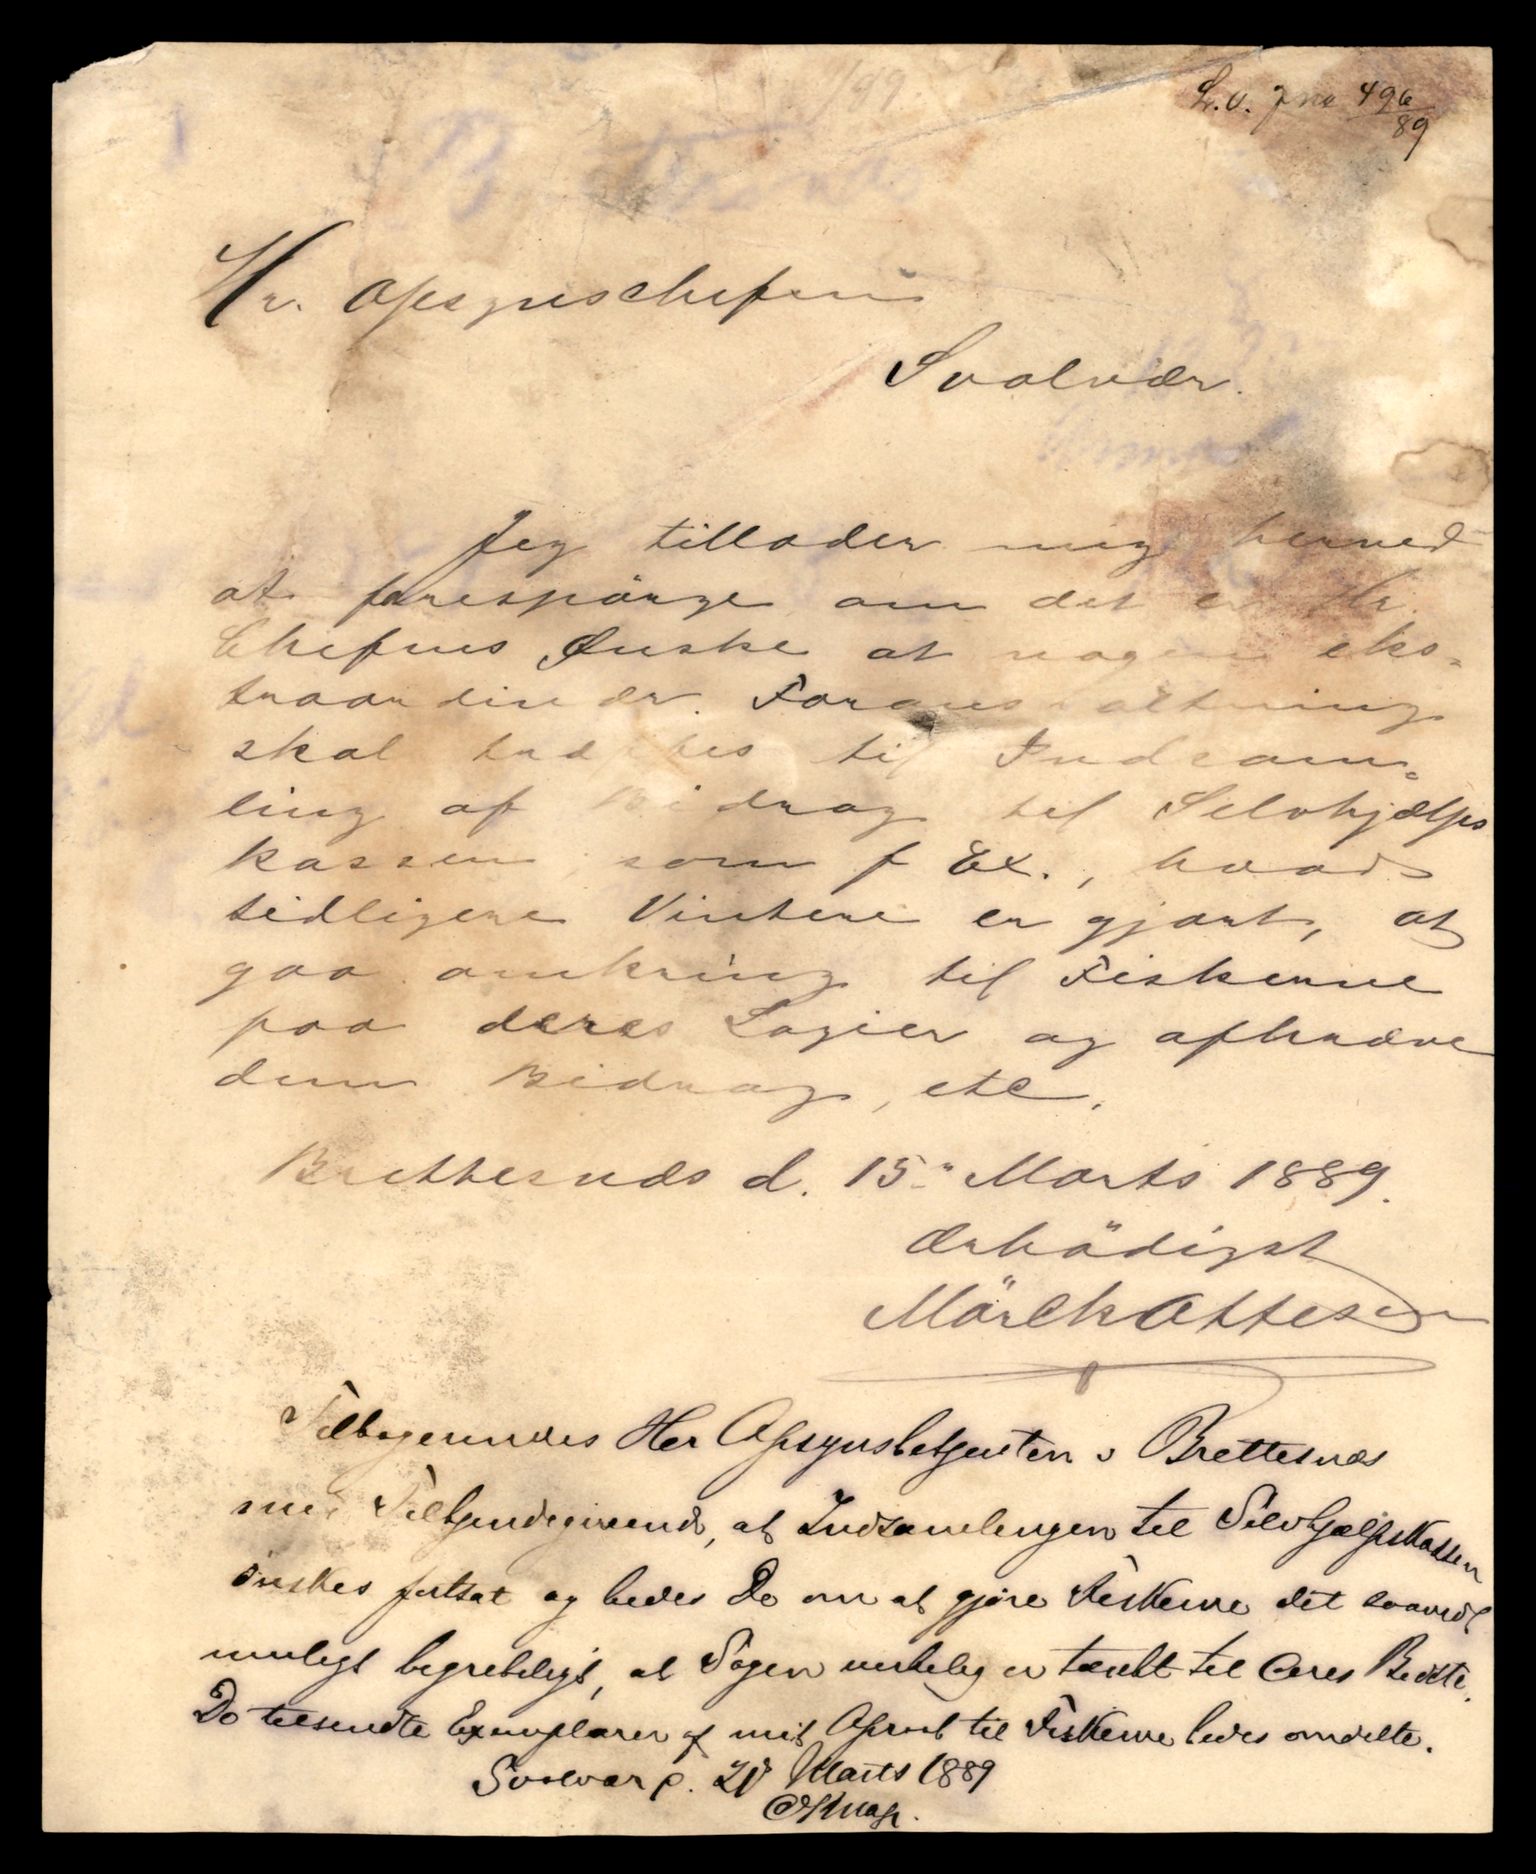 L.O. Jno 496/89
Hr. Opsynschefen
Svolvær.
Jeg tillader mig herved
at forespörge om det er Hr.
Chefens Ønske at nogen eks-
traordinær. Foranstaltning
skal træffes til Indsam-
ling af Bidrag til Selvhjælps
kassen, som f Ex., hvad
tidligere Vintere er gjort, at
gaa omkring til Fiskerne
paa deres Logier og afkræve
dem Bidrag, etc.
Brettesnæs d. 15de Marts 1889.
Ærbödigst
Mörch Ottesen
Tilbagesendes Her Opsynsbetjenten i Brettesnæs
med Tilkjendegivende, at Indsamlingen til Selvhjælpskassen
önskes fortsat og bedes De om at gjøre Fiskerne det saavidt
muligt begribeligt, at Sagen virkelig er tænkt til deres Bedste.
De tilsendte Exemplarer af mit Opraab til Fiskerne bedes omdelte.
Svolvær d. Marts 1889